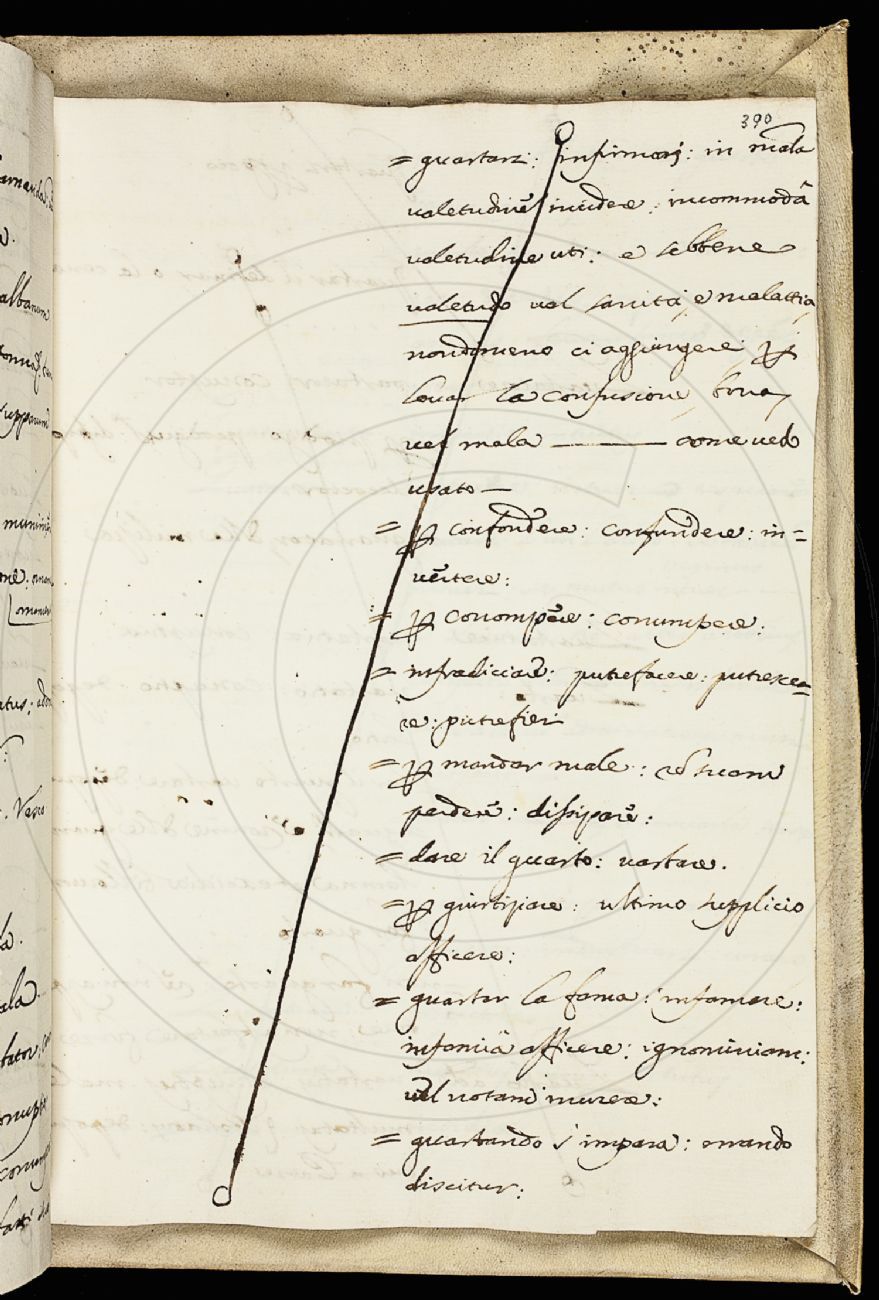 390
= guastarsi: infirmari: in mala
valetudinē incidere: incommodâ
valetudine uti: e sebbene
valetudo val sanità, e malattia,
nondimeno ci aggiungere, ꝑ
levar la confusione, bona,
vel mala ——— come vedo
usato —
= ꝑ confondere: confundere: in=
vertere:
= ꝑ corrompere: corrumpere:
= infradiciare: putrefacere: putresce=
re: putrefieri
= ꝑ mandar male: rē suam
perdere: dissipare:
= dare il guasto: vastare.
= ꝑ giustiziare: ultimo supplicio
afficere:
= guastar la fama: infamare:
infamiâ afficere: ignominiam:
vel notam inurere:
= guastando s'impara: errando
discitur:
albanum
supparum
Vesco